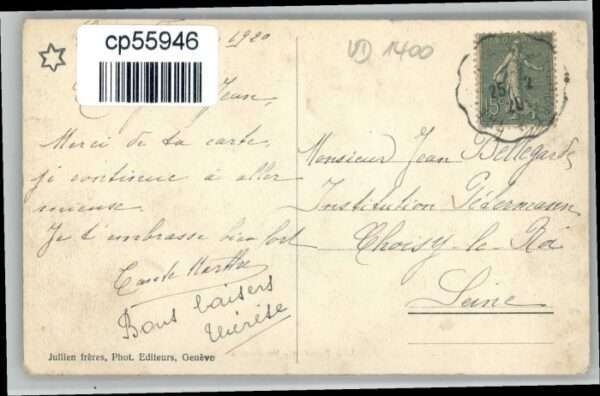 cp55946
1920
VD 1400
25 2
20
15
Jean,
Merci de ta carte,
je continue à aller
mieux.
Je t'embrasse bien fort
Tante Marthe
Bons baisers
Thérèse
Monsieur Jean Bellegarde
Institution
Choisy-le-Roi
Seine
Jullien frères, Phot. Editeurs, Genève